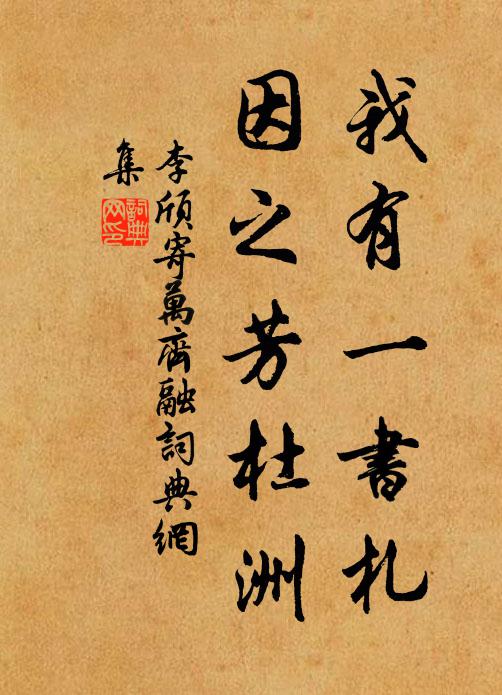 我有一書札
因之芳杜洲
李頎寄萬齊融詞典網
集
詞典
网印